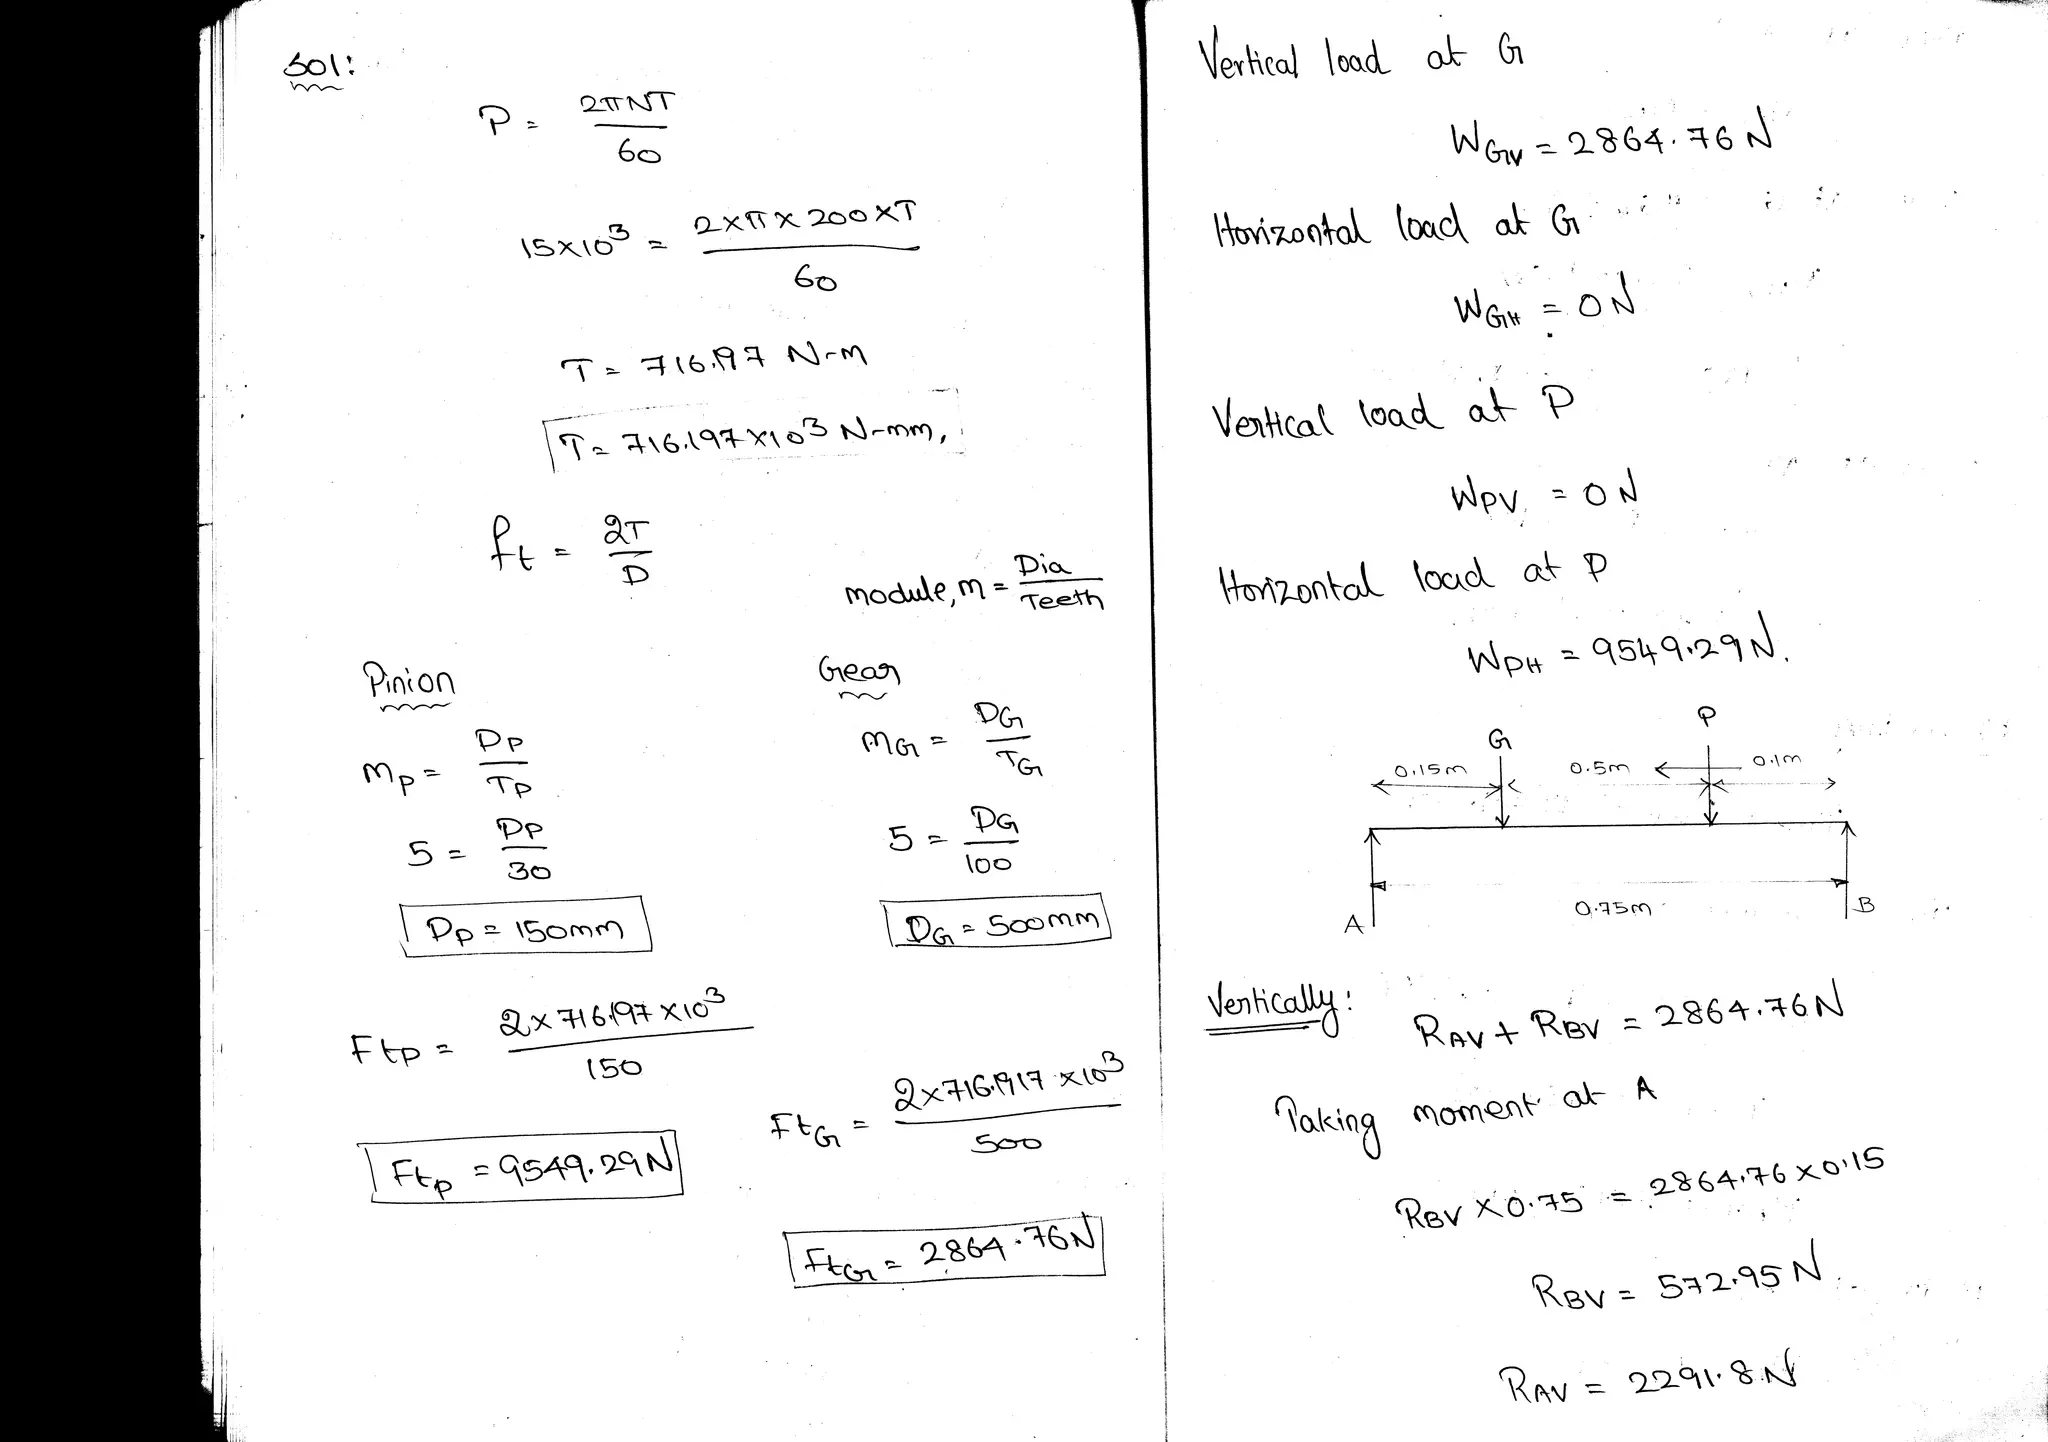 Sol:
P = 2πNT / 60
15×10³ = 2×π×200×T / 60
T = 716.197 N-m
T = 716.197×10³ N-mm,
ft = 2T / D
module, m = Dia / Teeth
Pinion
mp = DP / TP
5 = DP / 30
DP = 150mm
Ftp = 2×716.197×10³ / 150
Ftp = 9549.29N
Gear
mG = DG / TG
5 = DG / 100
DG = 500mm
FtG = 2×716.1917×10³ / 500
FtG = 2864.76N
Vertical load at G
WGV = 2864.76 N
Horizontal load at G
WGH = 0N
Vertical load at P
WPV = 0N
Horizontal load at P
WPH = 9549.29N.
G P
0.15m 0.5m 0.1m
0.75m
A B
Vertically:
RAV + RBV = 2864.76N
Taking moment at A
RBV × 0.75 = 2864.76 × 0.15
RBV = 572.95 N
RAV = 2291.8 N